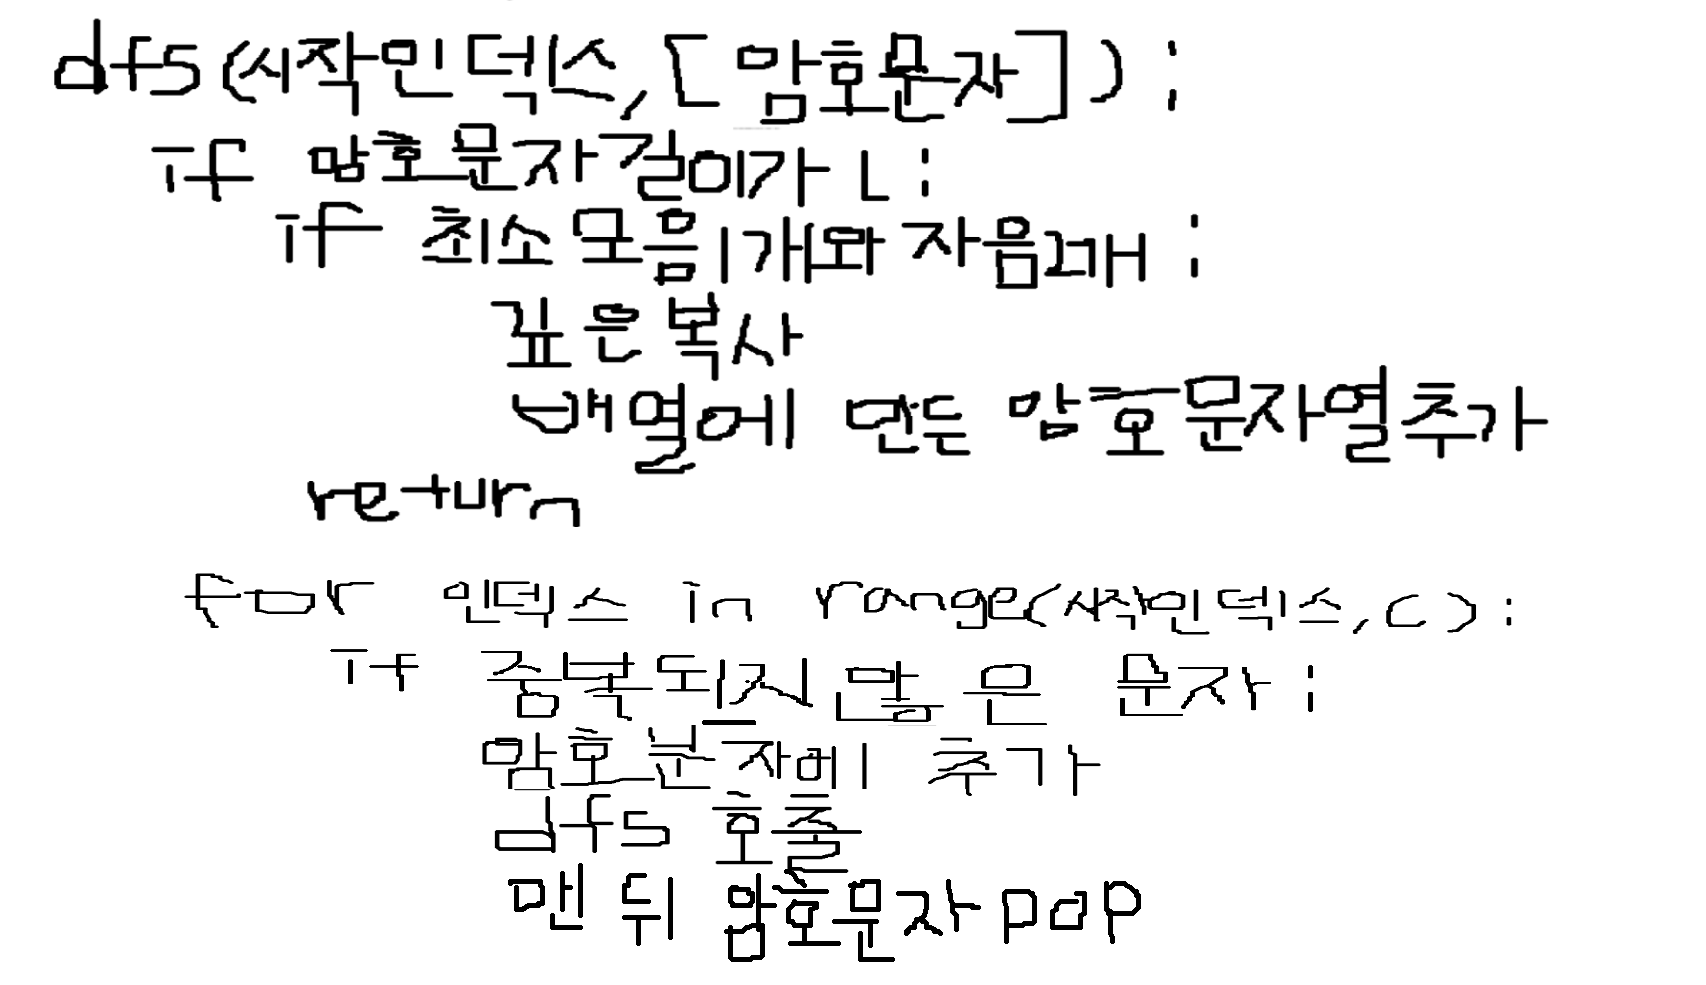 dfs(시작인덱스, [암호문자]):
if 암호문자길이가 L:
if 최소 모음 1개와 자음 2개:
깊은복사
배열에 만든 암호문자열추가
return
for 인덱스 in range(시작인덱스, C):
if 중복되지 않은 문자:
암호문자에 추가
dfs 호출
맨 뒤 암호문자 pop